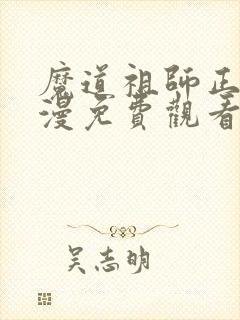 魔道祖師正
漫免費觀看
吴志明